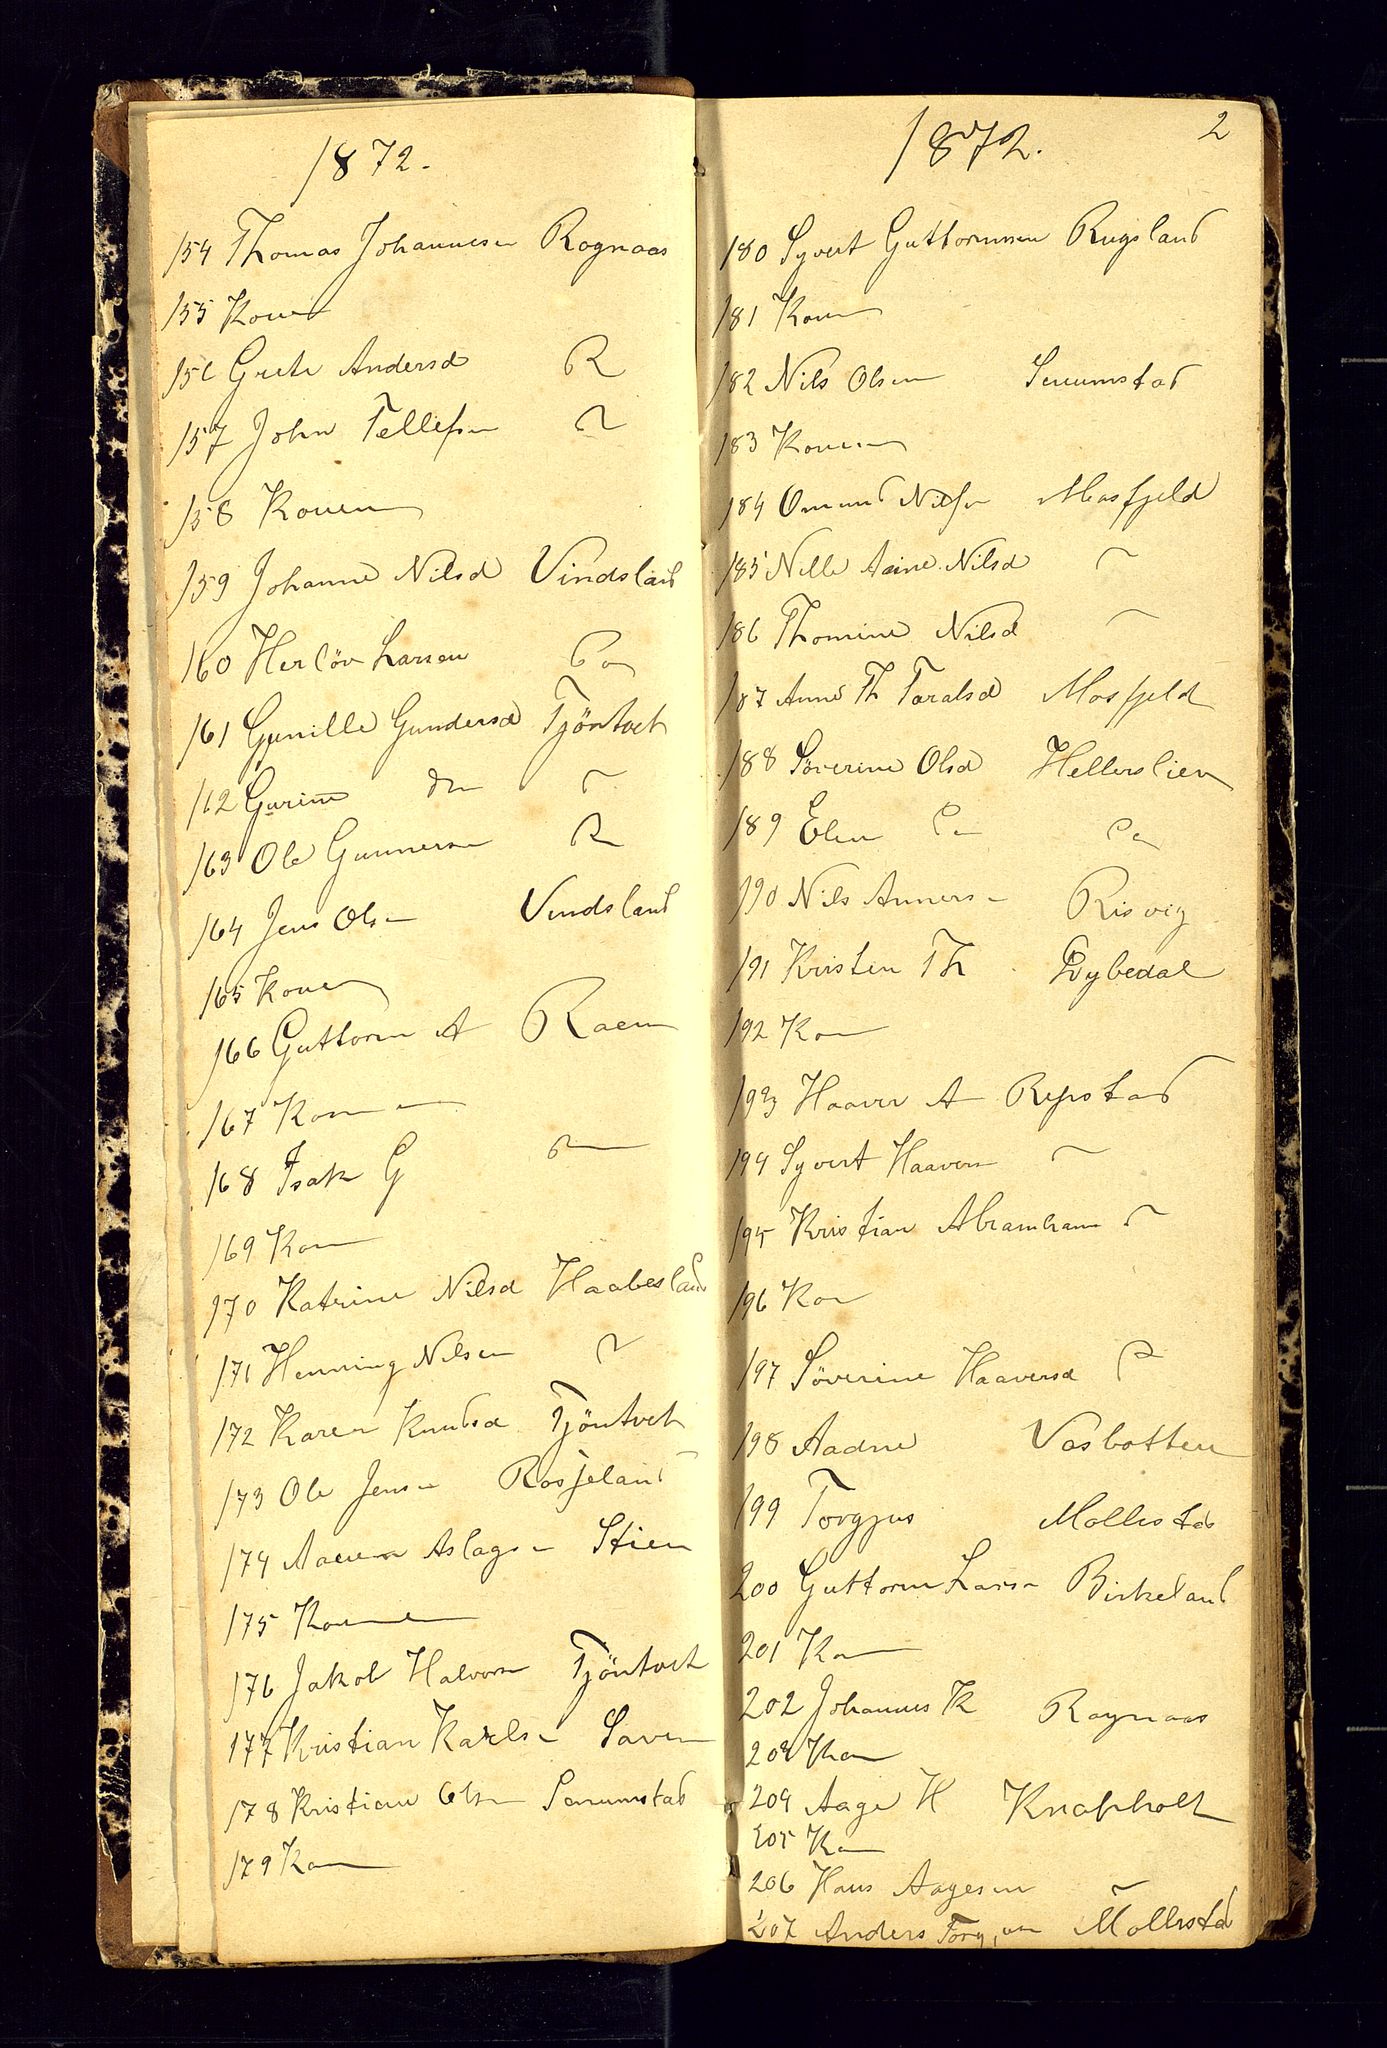 1872.
154 Thomas Johannesen Rognaas
155 Konen
156 Grete Andersd R
157 John Tellefsen
158 Konen
159 Johanne Nilsd Vindsland
160 Herlöv Larsen Do
161 Gunille Gundersd Tjöntvet
162 Gurine
163 Ole Gunnersen R
164 Jens Olsen Vindsland
165 Konen
166 Guttorm A Raen
167 Konen
168 Isak G
169 Kon
170 Katrine Nilsd Haabesland
171 Henning Nilsen
172 Karen Knudsd Tjöntvet
173 Ole Jensen Rosseland
174 Aslagsen Stien
175 Konen
176 Jakob Halvorsen Tjöntvet
177 Kristian Karlsen Saven
178 Kristian Olsen Senumstad
179 Kon
1872. 2
180 Syvert Guttormsen Rugsland
181 Kon
182 Nils Olsen Senumstad
183 Konen
184 Omund Nilsen Mosfjeld
185 Nille Aane Nilsd
186 Thomine Nilsd
187 Anne Th Taralsd Mosfjeld
188 Söverine Olsd Hellerslien
189 Elen Do Do
190 Nils Annersen Risvig
191 Kristen Th Dybedal
192 Kon
193 Haaver A Repstad
194 Syvert Haavers
195 Kristian Abramham
196 Kon
197 Söverine Haaversd
198 Aadne Vasbotten
199 Torgjus Mollestad
200 Guttorm Larsen Birkeland
201 Kon
202 Johannes K Rognaas
203 Kon
204 Aage H Knapholt
205 Kon
206 Hans Aagesen
207 Anders Mollestad